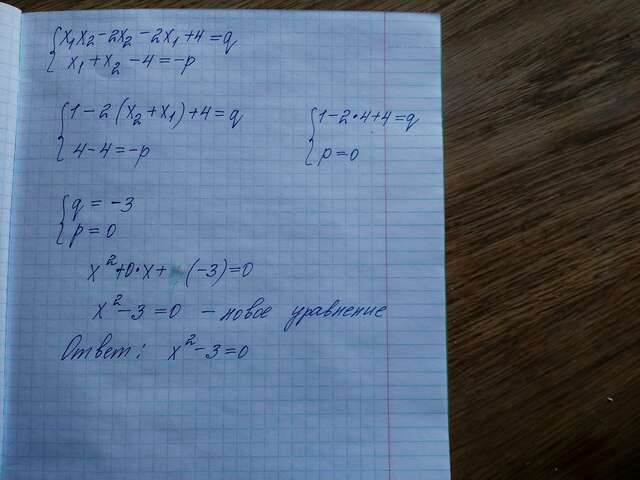 {x₁x₂-2x₂-2x₁+4=q
x₁+x₂-4=-p
{1-2(x₂+x₁)+4=q
4-4=-p
{1-2•4+4=q
p=0
{q=-3
p=0
x²+0•x+(-3)=0
x²-3=0 - новое уравнение
Ответ: x²-3=0